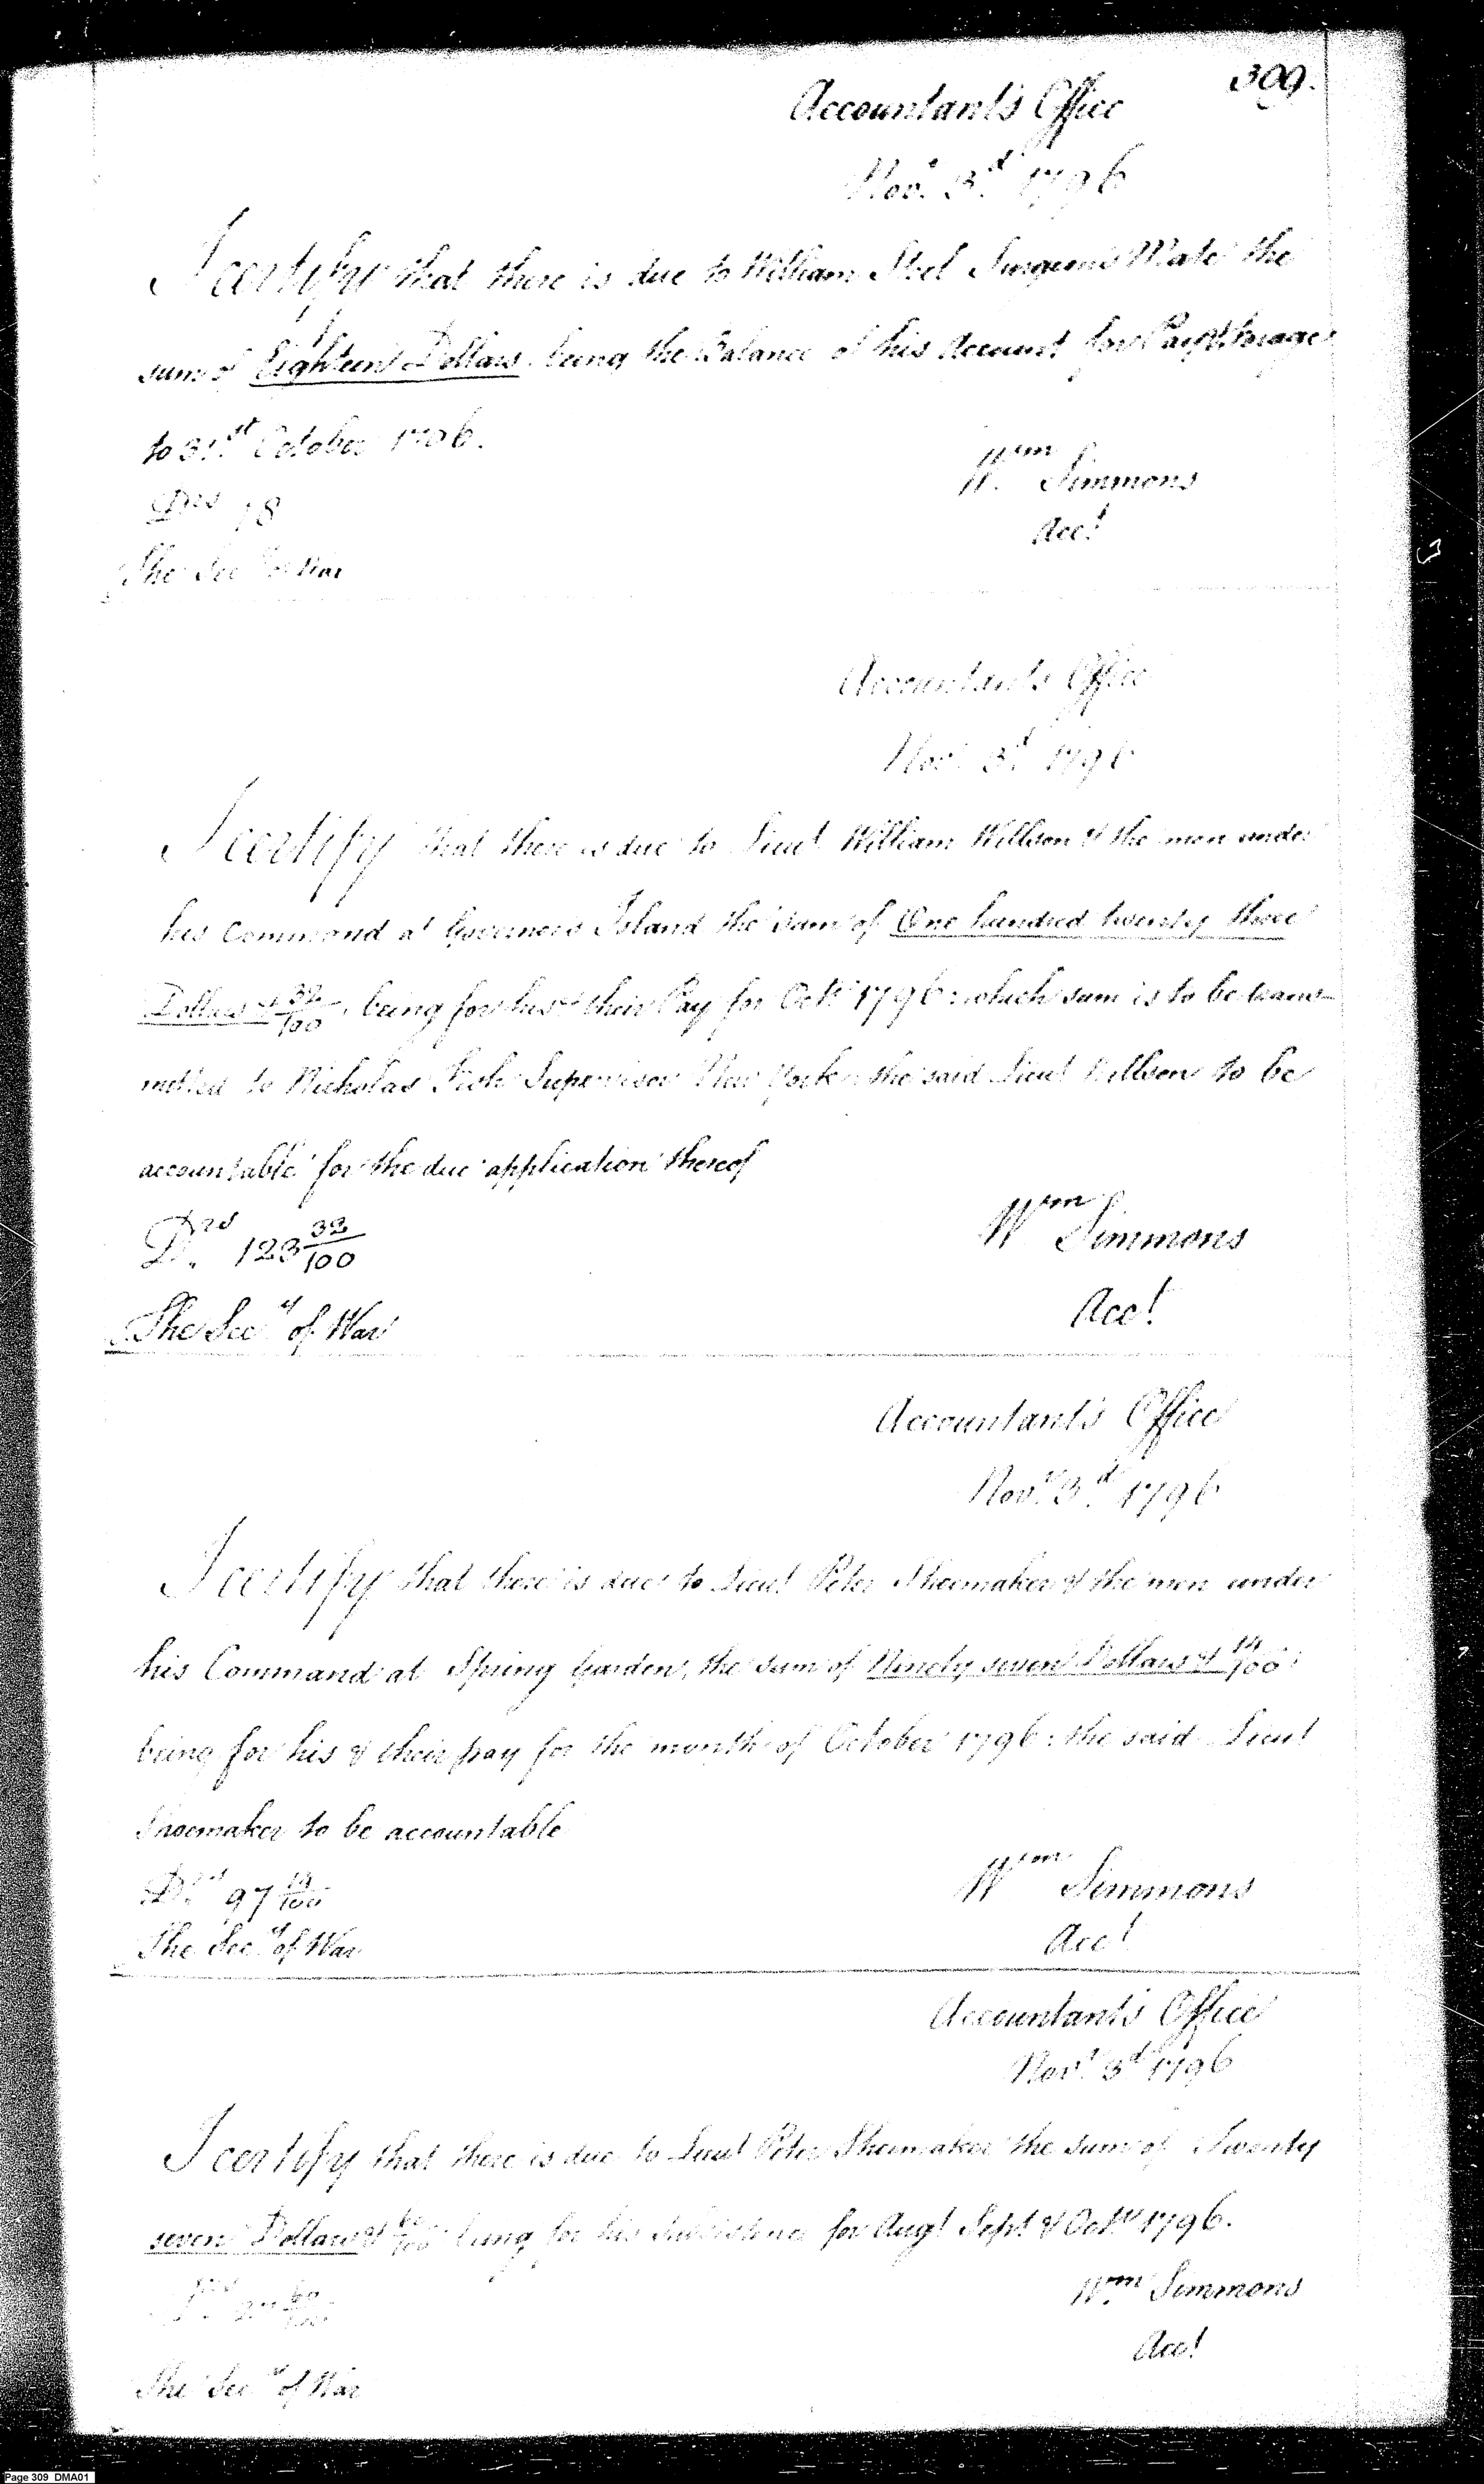 309.
Accountant's Office
Novr. 3d. 1796
I certify that there is due to William Steel Surgeons Mate the
sum of Eighteen Dollars being the Balance of his Account for Pay & forage
to 31st October 1796.
Drs 18
Wm Simmons
Acct
The Secy of War
Accountant's Office
Novr 3d 1796
I certify that there is due to Lieut William Willson & the men under
his Command at Governors Island the sum of One hundred twenty three
Dollars & 32/100, being for his & their Pay for Octr 1796: which sum is to be trans-
mitted to Nicholas Fish Supervisor New York the said Lieut Willson to be
accountable for the due application thereof
Drs. 123 32/100
Wm Simmons
Acct
The Secy of War
Accountant's Office
Novr. 3d. 1796
I certify that there is due to Lieut Peter Shoemaker & the men under
his Command at Spring Garden, the sum of Ninety seven Dollars & 14/100:
being for his & their pay for the month of October 1796: the said Lieut
Shoemaker to be accountable
Drs. 97 14/100
Wm Simmons
Acct
The Secy of War
Accountant's Office
Novr. 3d 1796
I certify that there is due to Lieut Peter Shoemaker the sum of Twenty
seven Dollars & 60/100 being for his Subsistence for Augt Sept & Octr 1796.
Drs. 27 60/100
Wm Simmons
Acct
The Secy of War
Page 309 DMA01